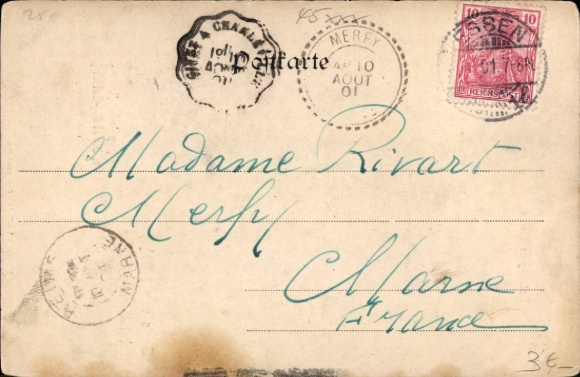 25
GIVET A CHARLEVILLE
10
AOUT
01
Postkarte
45
MERFY
10
AOUT
01
10 10
REICHSPOST
ESSEN
01. 7-8
Madame Rivart
Merfy
REIMS MARNE
Marne
France
3€-